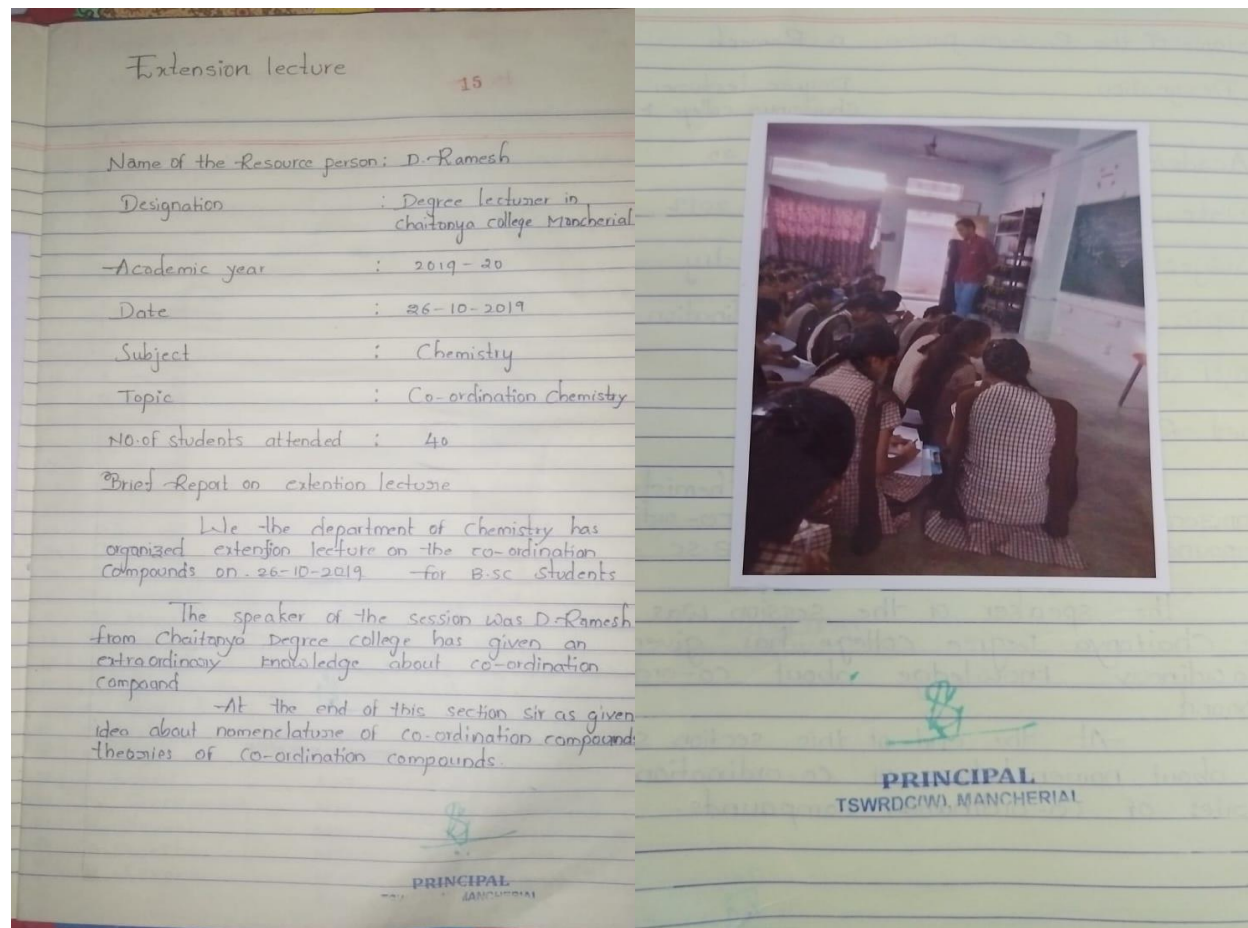 Extension lecture
15
Name of the Resource person: D. Ramesh
Designation : Degree lecturer in
Chaitanya college Mancherial
Academic year : 2019-20
Date : 26-10-2019
Subject : Chemistry
Topic : Co-ordination Chemistry
NO.of students attended : 40
Brief Report on extention lecture
We the department of Chemistry has
organized extension lecture on the co-ordination
Compounds on. 26-10-2019 for B.sc students
The speaker of the session was D.Ramesh
from Chaitanya Degree college has given an
extraordinary knowledge about co-ordination
compound
At the end of this section sir as given
idea about nomenclature of co-ordination compounds
theories of co-ordination compounds.
PRINCIPAL
MANCHERIAL
PRINCIPAL
TSWRDC(W), MANCHERIAL